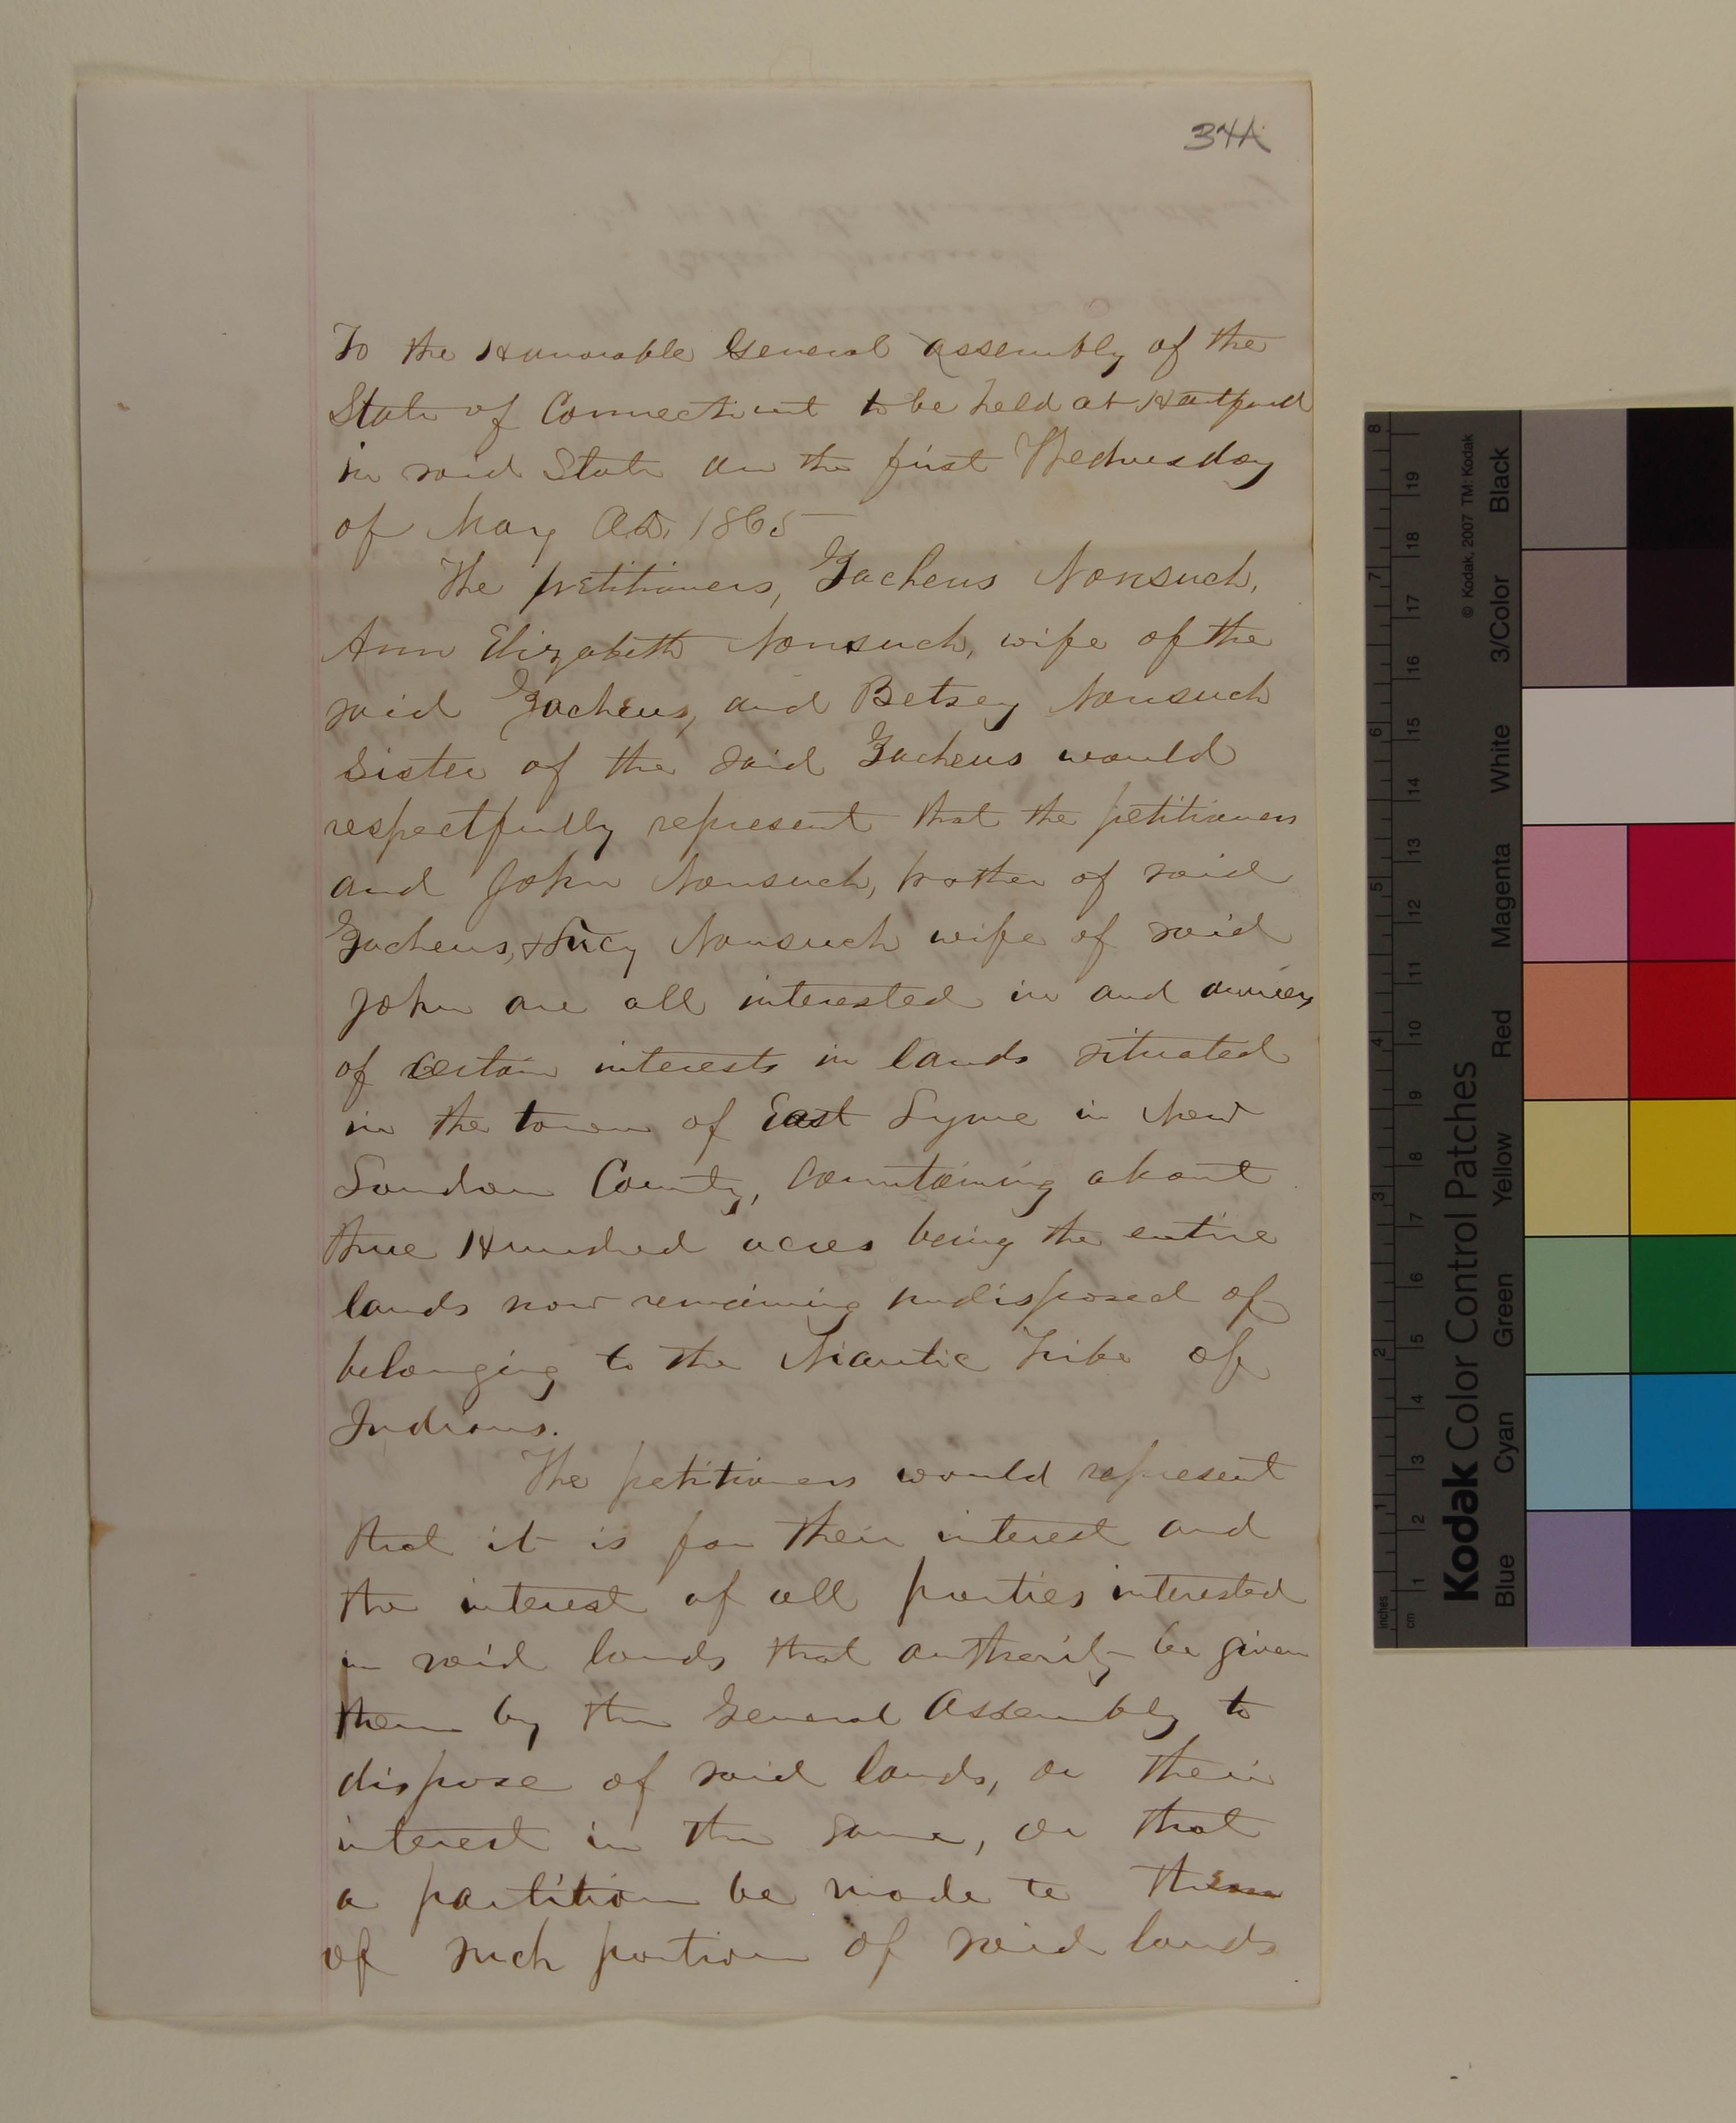 34A
To the Honorable General Assembly of the
State of Connecticut to be held at Hartford
in said State on the first Wednesday
of May A.D. 1865
The petitioners, Zacheus Nonsuch,
Ann Elizabeth Nonsuch, wife of the
said Zacheus, and Betsey Nonsuch
sister of the said Zacheus would
respectfully represent that the petitioners
and John Nonsuch, brother of said
Zacheus, & Lucy Nonsuch wife of said
John are all interested in and owners
of certain interests in lands situated
in the town of East Lyme in New
London County, containing about
three Hundred acres being the entire
lands now remaining undisposed of
belonging to the Niantic Tribe of
Indians.
The petitioners would represent
that it is for their interest and
the interest of all parties interested
in said lands that authority be given
them by the General Assembly to
dispose of said lands, or their
interest in the same, or that
a partition be made to them
of such portion of said lands
Kodak Color Control Patches
© Kodak, 2007 TM: Kodak
Blue Cyan Green Yellow Red Magenta White 3/Color Black
inches 1 2 3 4 5 6 7 8
cm 1 2 3 4 5 6 7 8 9 10 11 12 13 14 15 16 17 18 19